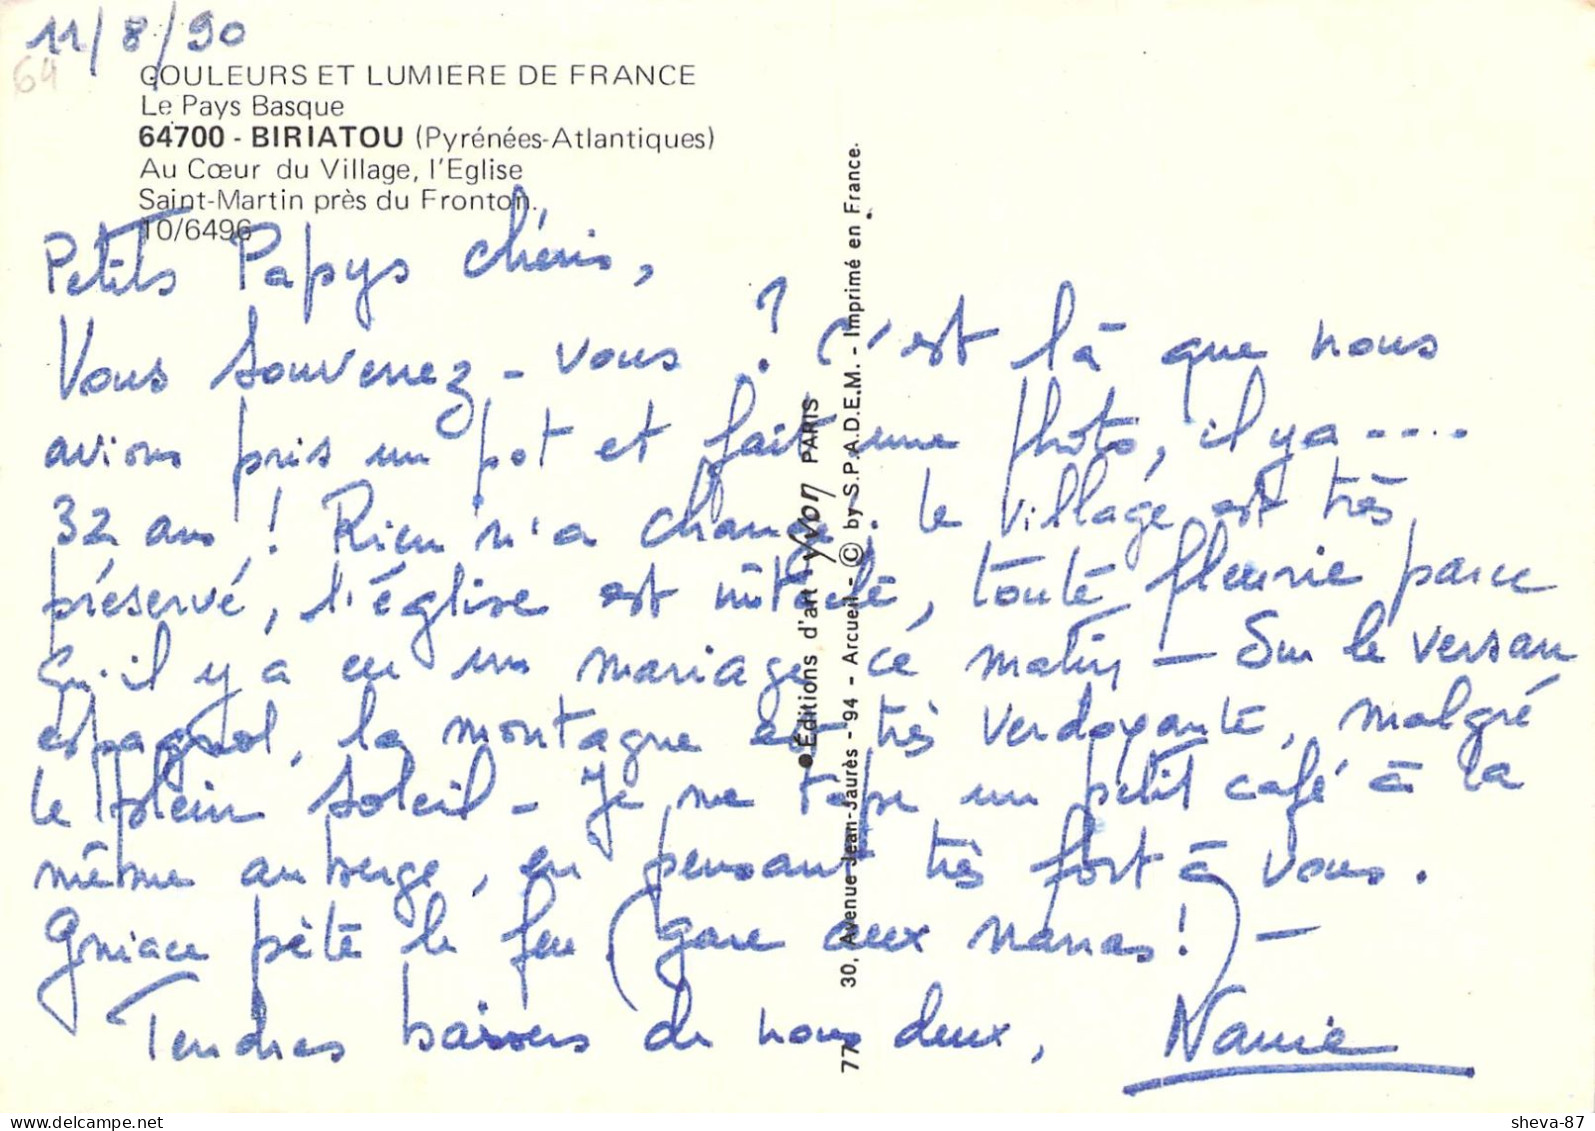 11/8/90
64
COULEURS ET LUMIERE DE FRANCE
Le Pays Basque
64700 - BIRIATOU (Pyrénées-Atlantiques)
Au Cœur du Village, l'Eglise
Saint-Martin près du Fronton.
10/6496
Petits Papys chéris,
Vous souvenez-vous ? C'est là que nous
avions pris un pot et fait une photo, il y a ....
32 ans ! Rien n'a changé. Le village est très
préservé, l'église est intacte, toute fleurie parce
qu'il y a eu un mariage ce matin - Sur le versan
espagnol, la montagne est très verdoyante, malgré
le plein soleil - Je me tape un petit café à la
même auberge, en pensant très fort à vous.
Gniace pète le feu (gare aux nanas!) -
Tendres baisers de nous deux,
Éditions d'art Yvon PARIS
30, Avenue Jean-Jaurès - 94 - Arcueil - © by S.P.A.D.E.M. - Imprimé en France.
77
sheva-87